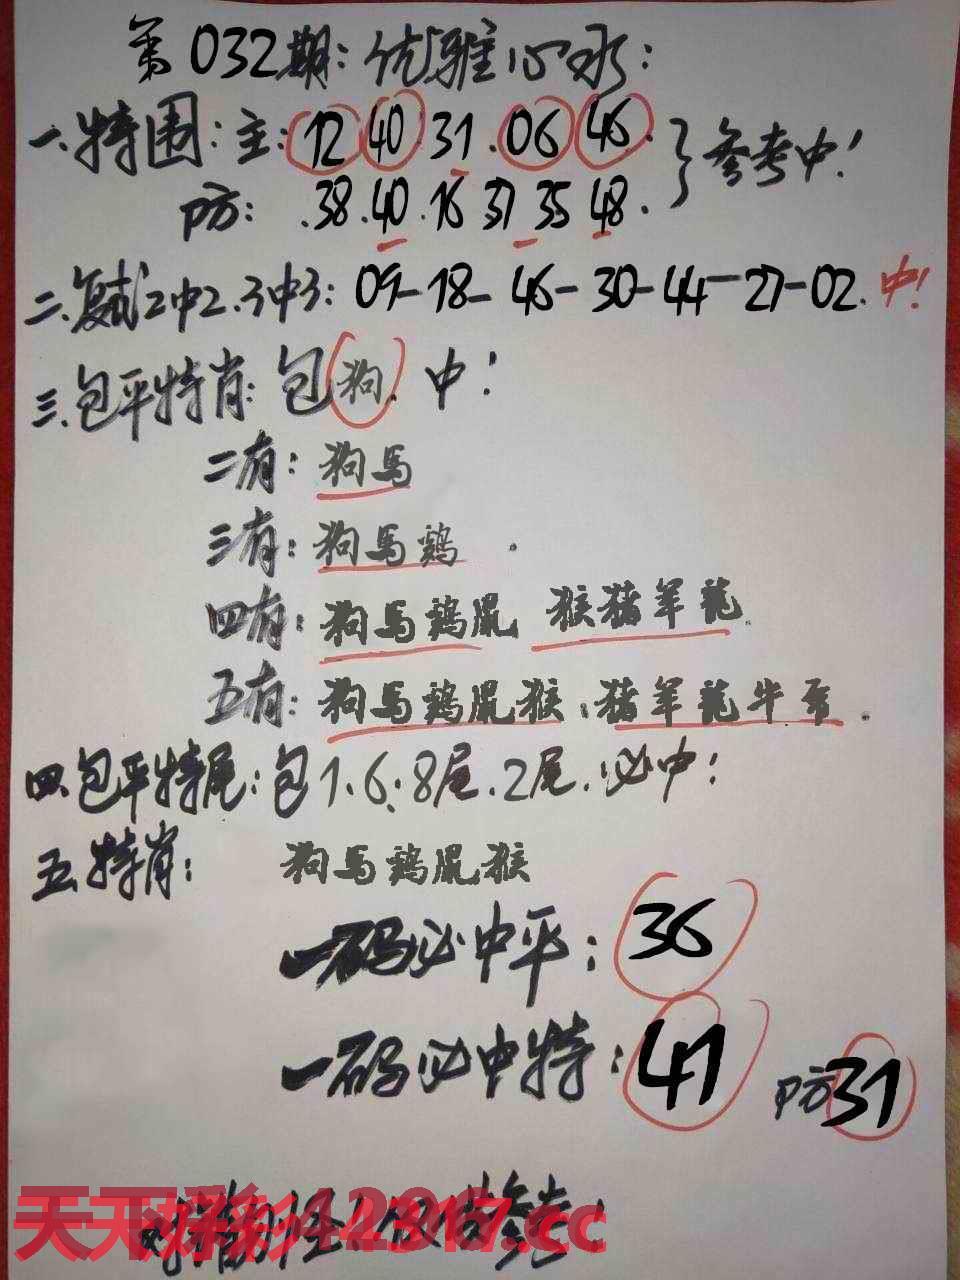 第032期:优雅心水:
一.特围:主:12 40.31.06 46.
防:.38.40.16 37 35 48.
}参考中!
二.复式2中2.3中3:09-18-46-30-44-27-02.中!
三.包平特肖:包狗.中!
二有:狗馬
三有:狗馬鷄.
四有:狗馬鷄鼠 猴猪羊龍.
五有:狗馬鷄鼠猴.猪羊龍牛
四.包平特尾:包1.6.8尾.2尾.必中!
五.特肖: 狗馬鷄鼠猴
一码必中平:36
一码必中特:41 防31
天下彩 .cc